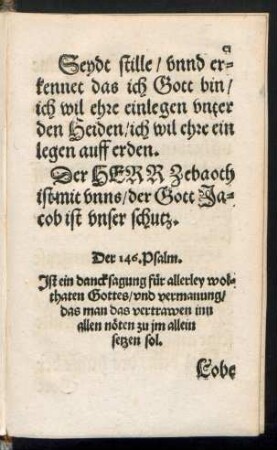 cj
Seydt stille / vnnd er-
kennet das ich Gott bin /
ich wil ehre einlegen vnter
den Heiden / ich wil ehre ein
legen auff erden.
Der HERR Zebaoth
ist mit vnns / der Gott Ja-
cob ist vnser schutz.
Der 146. Psalm.
Ist ein dancksagung für allerley wol-
thaten Gottes / vnd vermanung /
das man das vertrawen inn
allen nöten zu jm allein
setzen sol.
Lobe